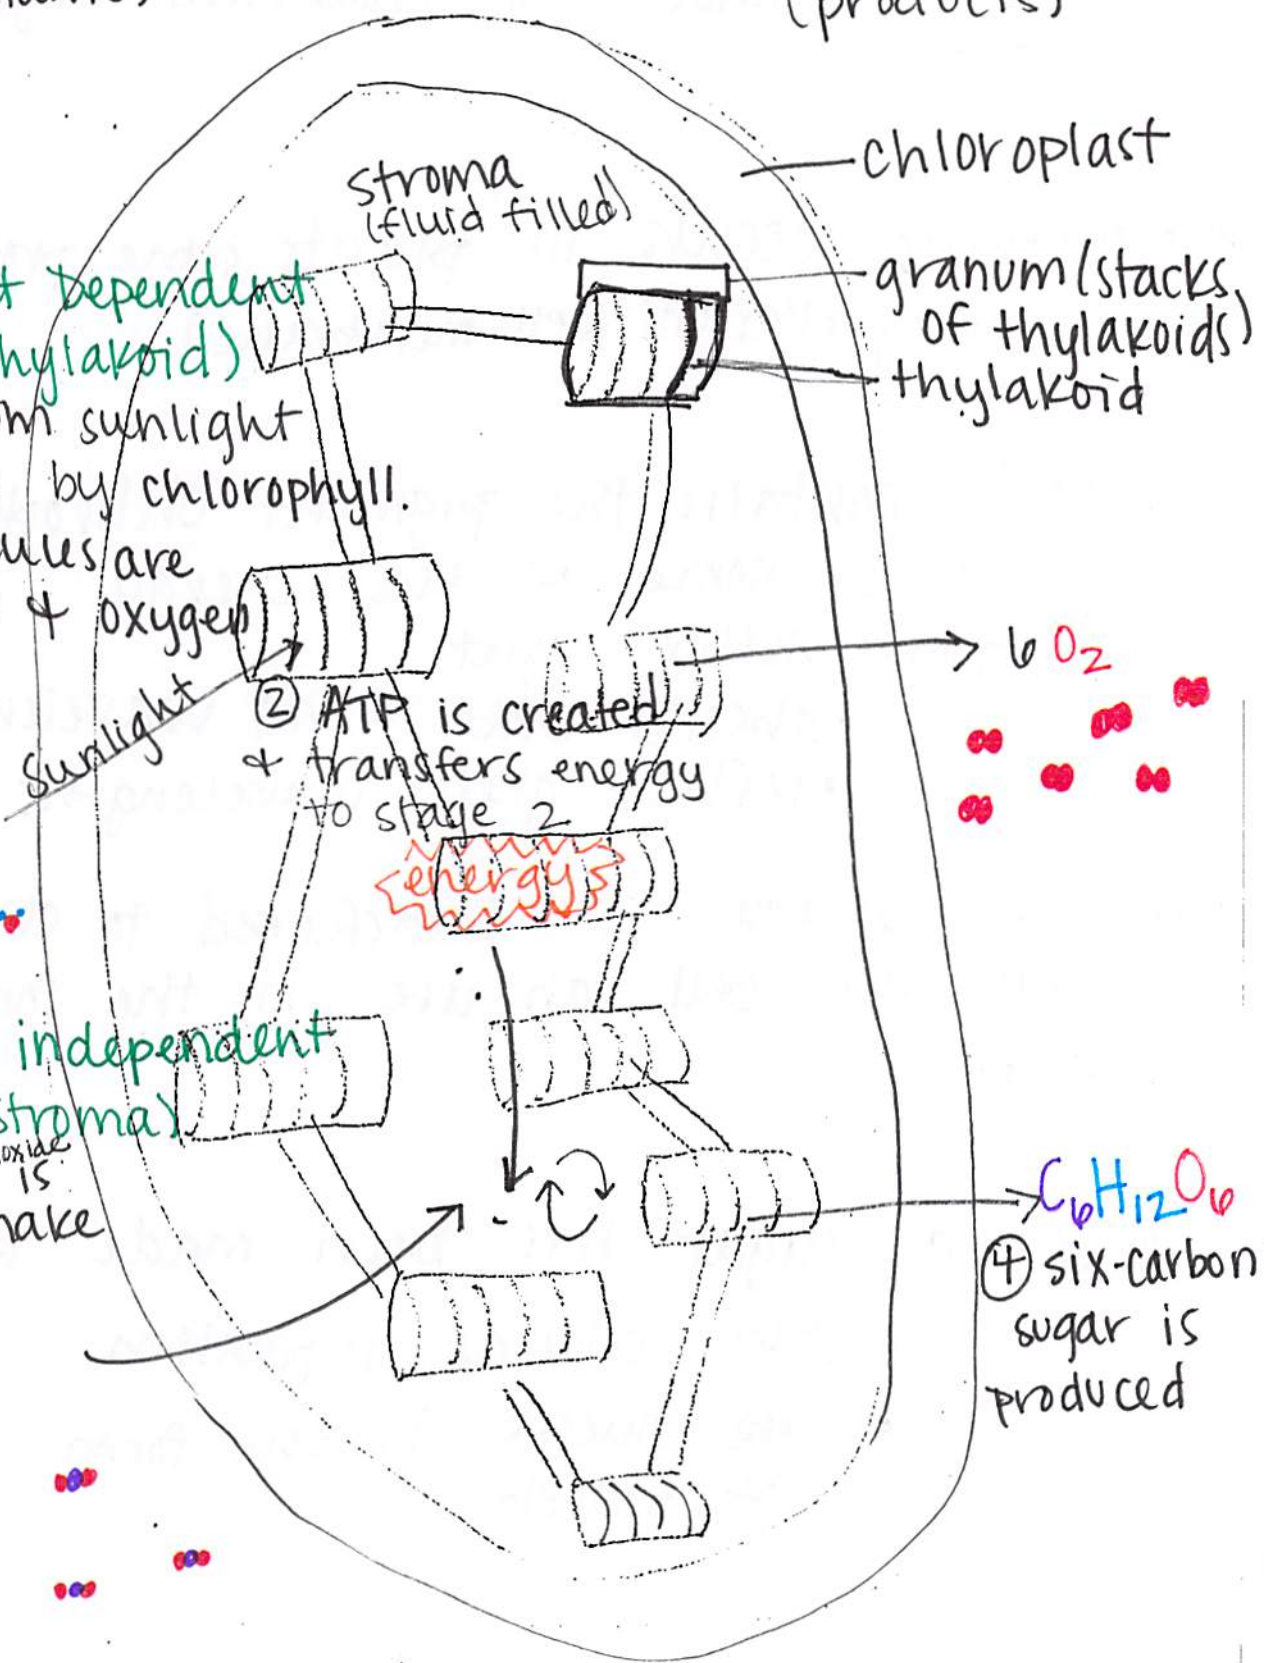 (products)
chloroplast
stroma
(fluid filled)
granum (stacks
of thylakoids)
thylakoid
Dependent
hylakoid)
sunlight
by chlorophyll.
are
+ oxygen
sunlight
② ATP is created
+ transfers energy
to stage 2
energy
6 O2
independent
stroma)
oxide
is
make
C6H12O6
④ six-carbon
sugar is
produced